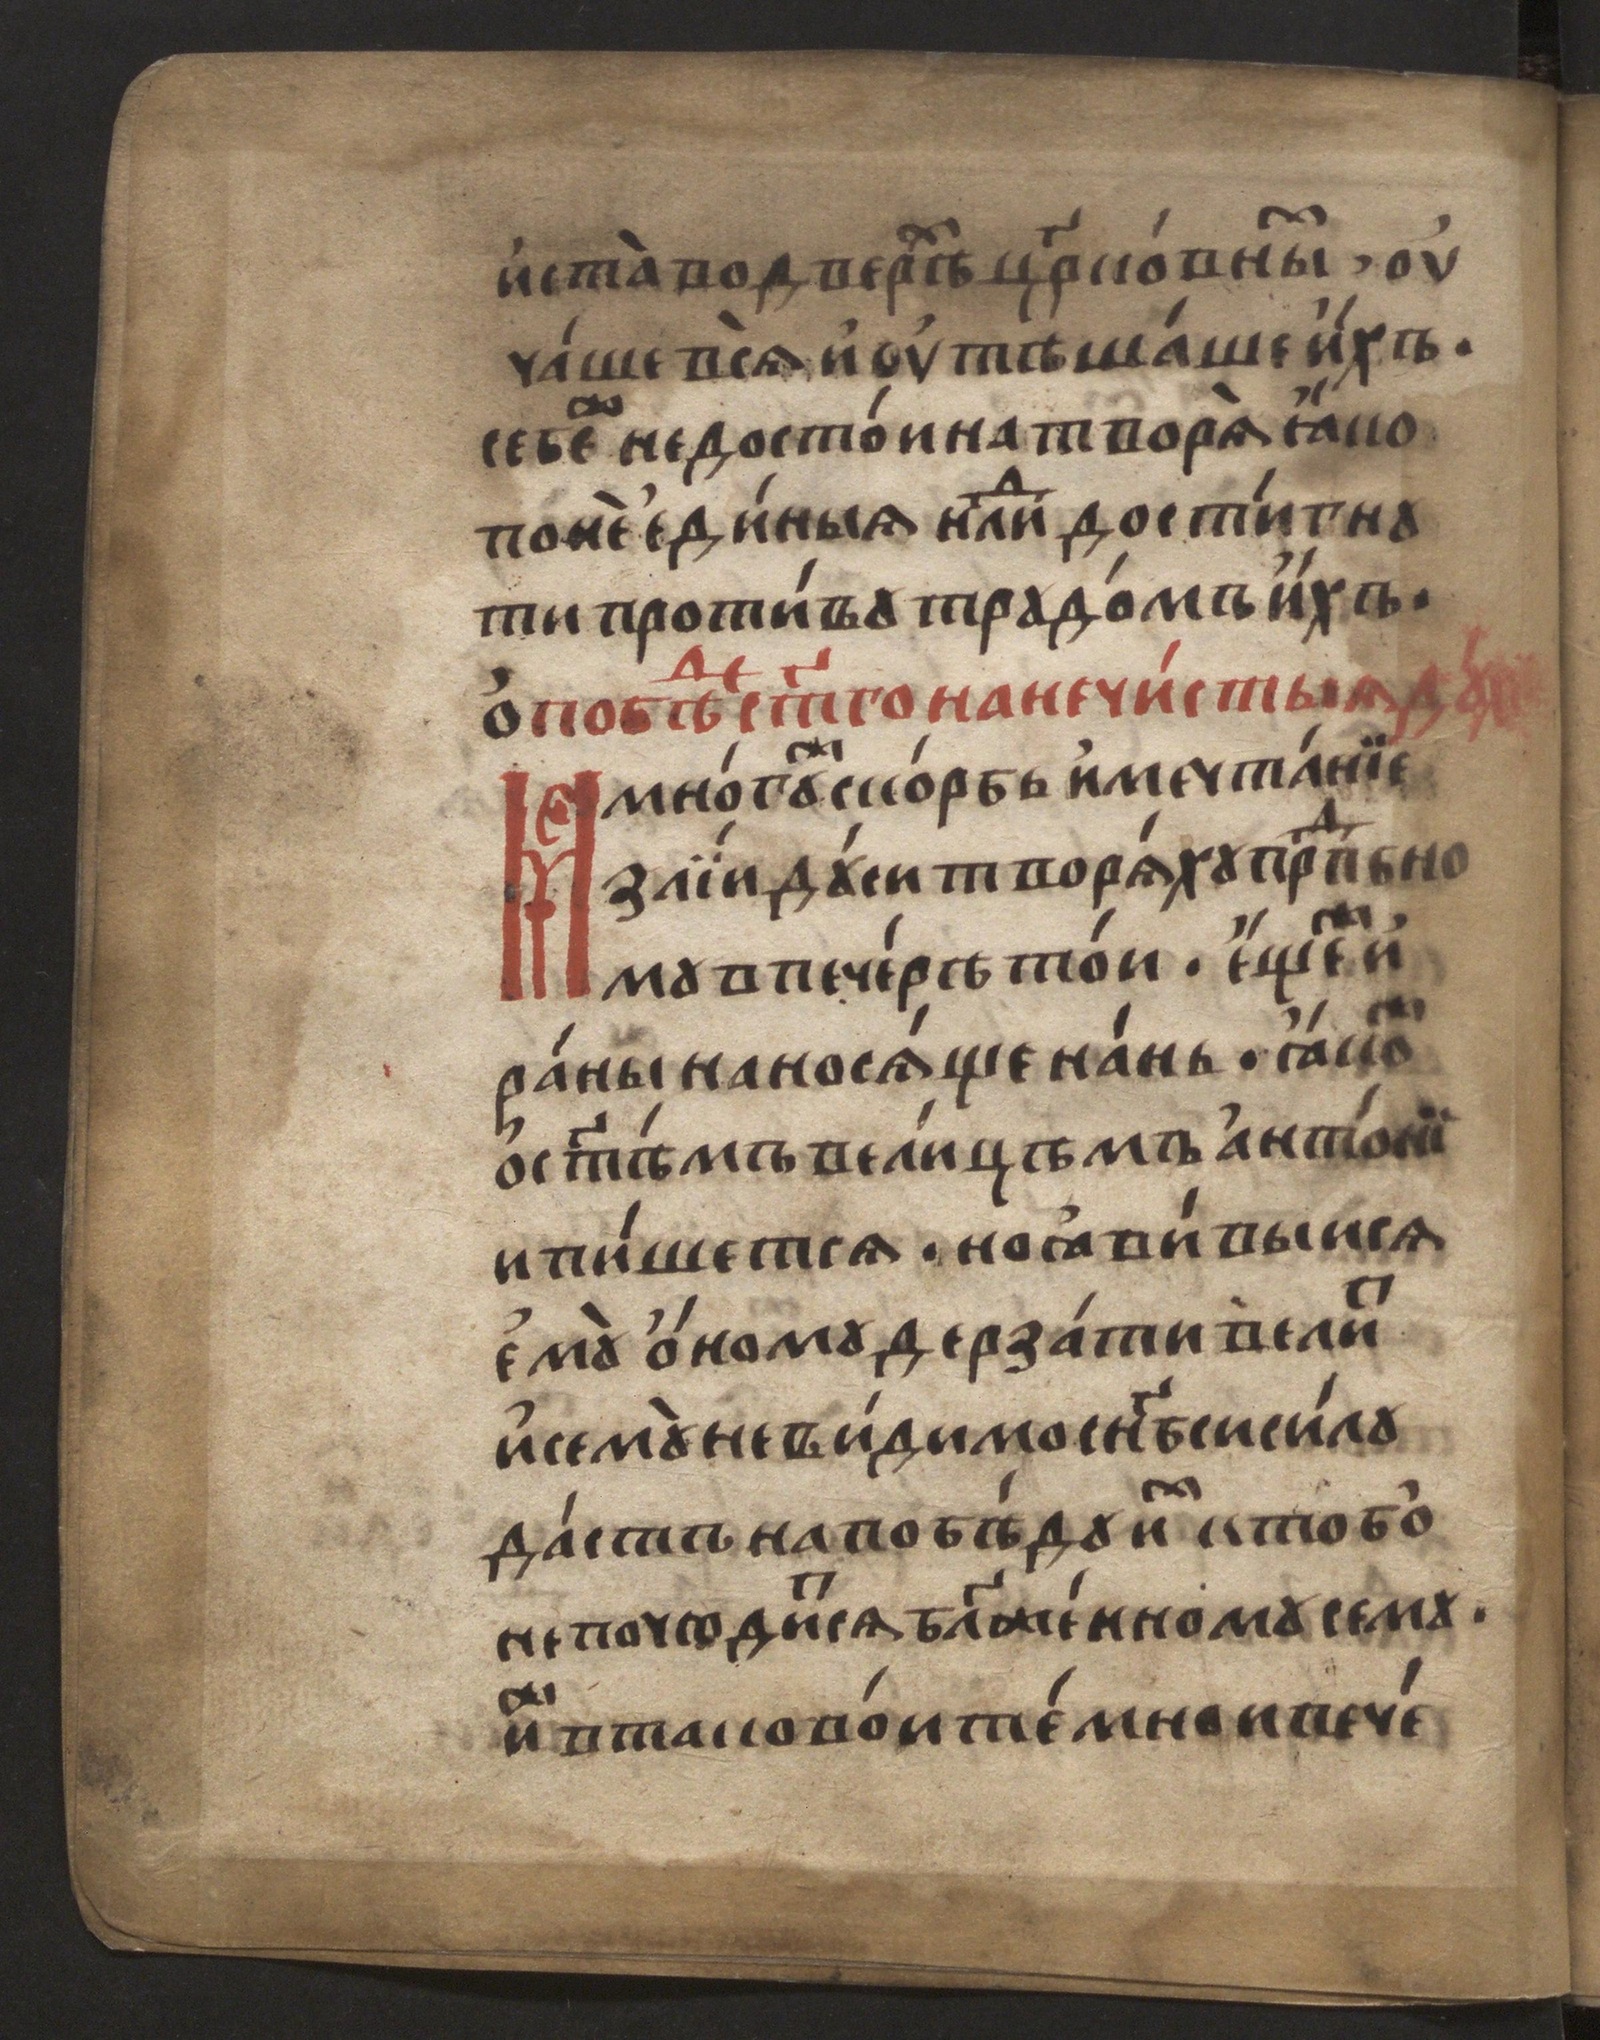 и҆ста̀водверⷯъцр҃ко́вныⷯ, ѹ҆
ча́шевсѧ̀и҆ѹ҆тѣша́шеи҆́хъ.
себеⷤ недосто́инатворѧ̀ ꙗ҆́ко
понѐє҆ди́ныѧ нлⷣи дости́гнꙋ
ти проти́вꙋтрꙋдо́мъи҆́хъ.
ѡ҆побѣⷣест҃гонанечи́стыѧдꙋ́хи
И҆мно́гꙋⷤско́рбь и҆мечта́нїе
злі́идꙋ́ситворѧ́хꙋпрⷣпбно
мꙋвпече́рѣто́и. є҆́щеⷤи҆
ра́нынаносѧ́щена́нь. ꙗ҆́коⷤ
ѡ҆ст҃ѣ́мъвели́цѣмъа҆нто́нї
ипи́шется. ноꙗ҆ви́выисѧ
є҆мꙋ̀ ѻ҆́номꙋдерза́тивелиⷡ҇
и҆семꙋ̀неви́димоснб҃сиси́лꙋ
да́стънапобѣ́дꙋиⷨ ктобо
непочюдиⷡ҇сѧбл҃же́нномꙋсемꙋ.
иⷤвтаково́ите́мноипече́